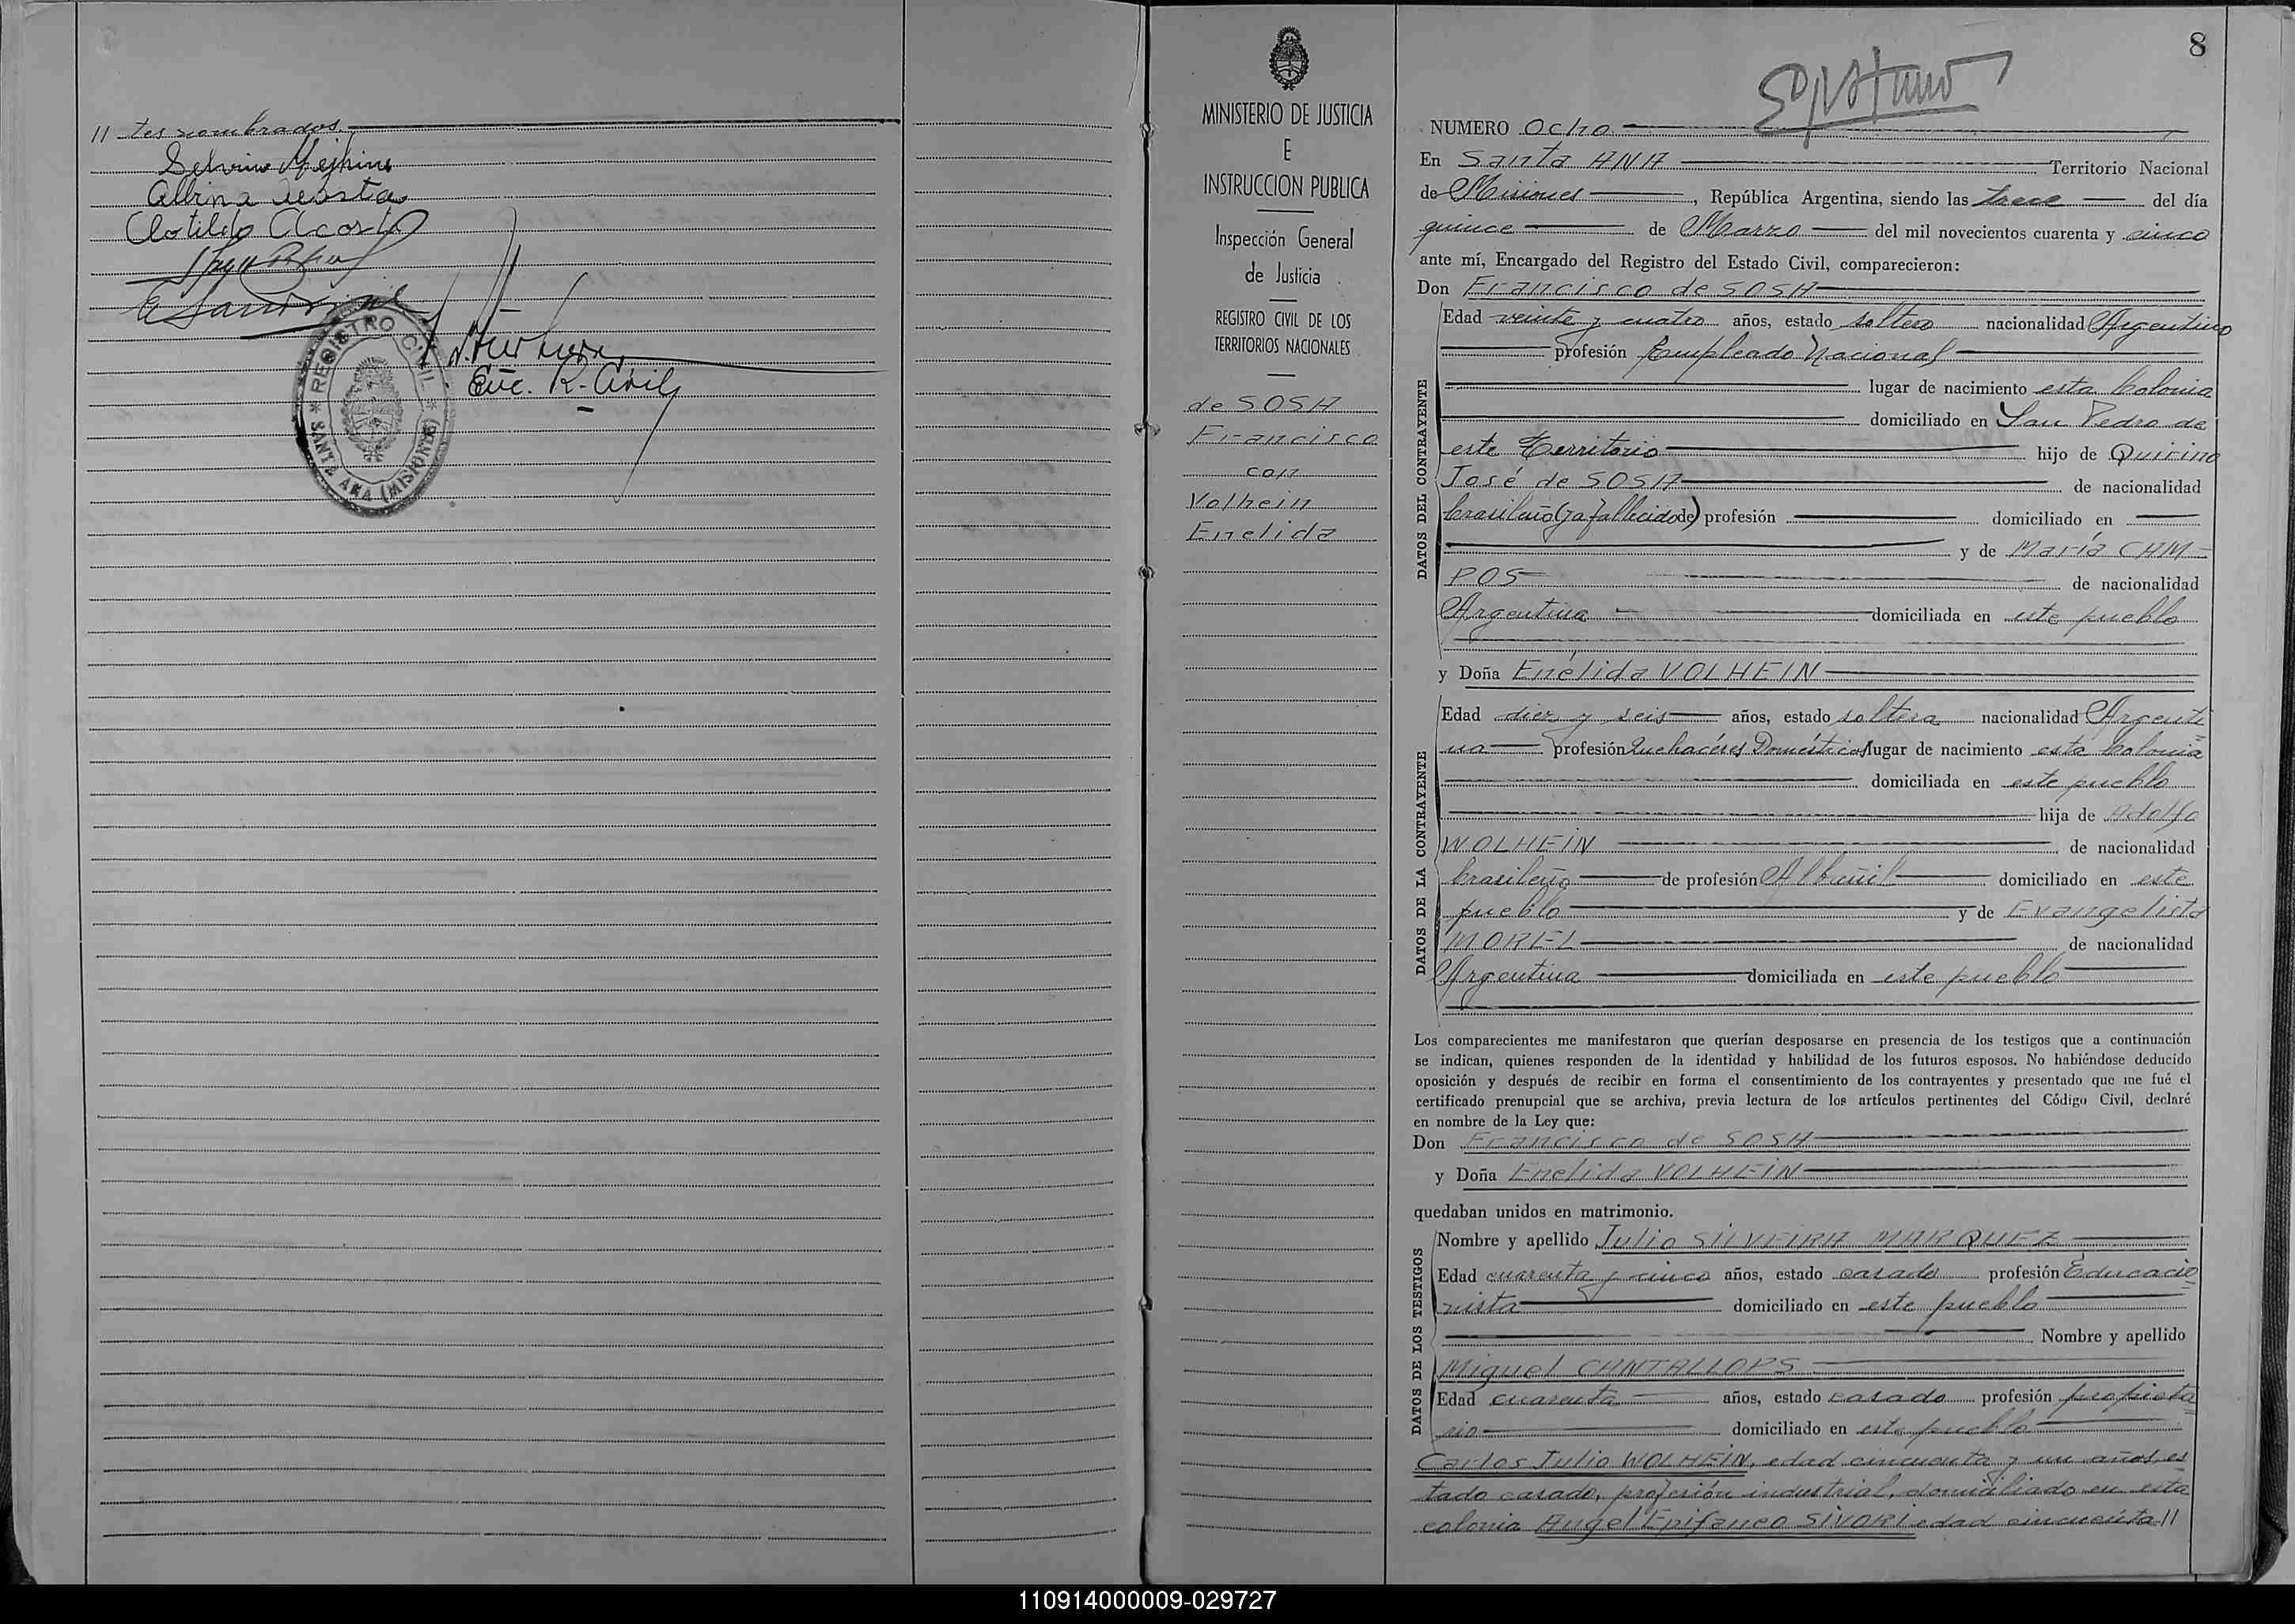 // tes nombrados.
Albina Acosta
Clotildo Acosta
Enc. R. Civil
REGISTRO CIVIL
SANTA ANA (MISIONES)
MINISTERIO DE JUSTICIA
E
INSTRUCCION PUBLICA
Inspección General
de Justicia
REGISTRO CIVIL DE LOS
TERRITORIOS NACIONALES
de SOSA
Francisco
con
Volhein
Enelida
8
NUMERO Ocho
En Santa ANA Territorio Nacional
de Misiones, República Argentina, siendo las trece del día
quince de Marzo del mil novecientos cuarenta y cinco
ante mí, Encargado del Registro del Estado Civil, comparecieron:
Don Francisco de SOSA
DATOS DEL CONTRAYENTE
Edad veinte y cuatro años, estado soltero nacionalidad Argentino
profesión Empleado Nacional
lugar de nacimiento esta Colonia
domiciliado en San Pedro de
este Territorio hijo de Quirino
José de SOSA de nacionalidad
brasileño (ya fallecido de) profesión domiciliado en
y de María CAM-
POS de nacionalidad
Argentina domiciliada en este pueblo
y Doña Enélida VOLHEIN
DATOS DE LA CONTRAYENTE
Edad diez y seis años, estado soltera nacionalidad Argenti
na profesión Quehacéres Domésticos lugar de nacimiento esta Colonia
domiciliada en este pueblo
hija de Adolfo
WOLHEIN de nacionalidad
brasileño de profesión Albañil domiciliado en este
pueblo y de Evangelista
MOREL de nacionalidad
Argentina domiciliada en este pueblo
Los comparecientes me manifestaron que querían desposarse en presencia de los testigos que a continuación
se indican, quienes responden de la identidad y habilidad de los futuros esposos. No habiéndose deducido
oposición y después de recibir en forma el consentimiento de los contrayentes y presentado que me fué el
certificado prenupcial que se archiva, previa lectura de los artículos pertinentes del Código Civil, declaré
en nombre de la Ley que:
Don Francisco de SOSA
y Doña Enelida VOLHEIN
quedaban unidos en matrimonio.
DATOS DE LOS TESTIGOS
Nombre y apellido Julio SILVEIRA MARQUEZ
Edad cuarenta y cinco años, estado casado profesión Educacio
nista domiciliado en este pueblo
Nombre y apellido
Miguel CANTALLOPS
Edad cuarenta años, estado casado profesión propieta
rio domiciliado en este pueblo
Carlos Julio WOLHEIN, edad cincuenta y un años, es
tado casado, profesión industrial, domiciliado en esta
colonia Angel Epifaneo SIVORI edad cincuenta //
110914000009-029727